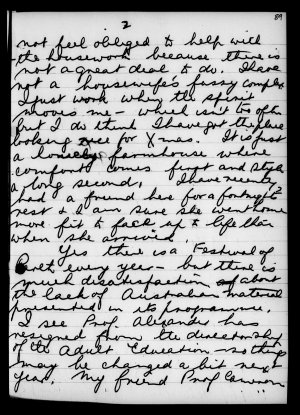 2
89
not feel obliged to help with
the housework because there is
not a great deal to do. I have
not a housewife's fussy complex
I just work when the spirit
moves me – which isn't too often
But I do think I have got the place
looking nice for Xmas. It is just
a homely farmhouse where
comfort comes first and style
a long second. I have recently
had a friend here for a fortnight's
rest & I am sure she went home
more fit to face up to life than
when she arrived.
Yes there is a Festival of
Perth every year – but there is
much dissatisfaction about
the lack of Australian material
presented in its programme.
I see Prof. Alexander has
resigned from the directorship
of the Adult Education – so things
may be changed a bit next
year. My friend Prof